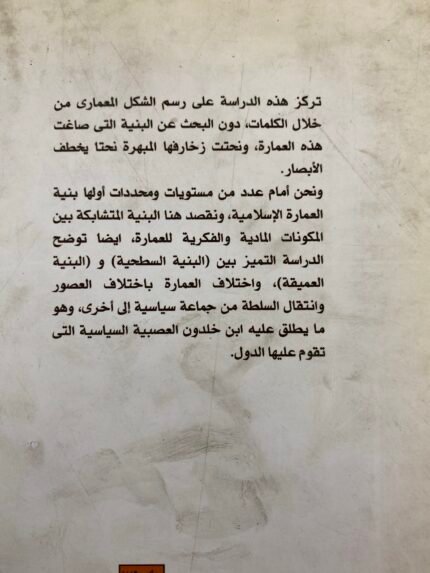 تركز هذه الدراسة على رسم الشكل المعمارى من
خلال الكلمات، دون البحث عن البنية التى صاغت
هذه العمارة، ونحتت زخارفها المبهرة نحتا يخطف
الأبصار.
ونحن أمام عدد من مستويات ومحددات أولها بنية
العمارة الإسلامية، ونقصد هنا البنية المتشابكة بين
المكونات المادية والفكرية للعمارة، ايضا توضح
الدراسة التميز بين (البنية السطحية) و (البنية
العميقة)، واختلاف العمارة باختلاف العصور
وانتقال السلطة من جماعة سياسية إلى أخرى، وهو
ما يطلق عليه ابن خلدون العصبية السياسية التى
تقوم عليها الدول.